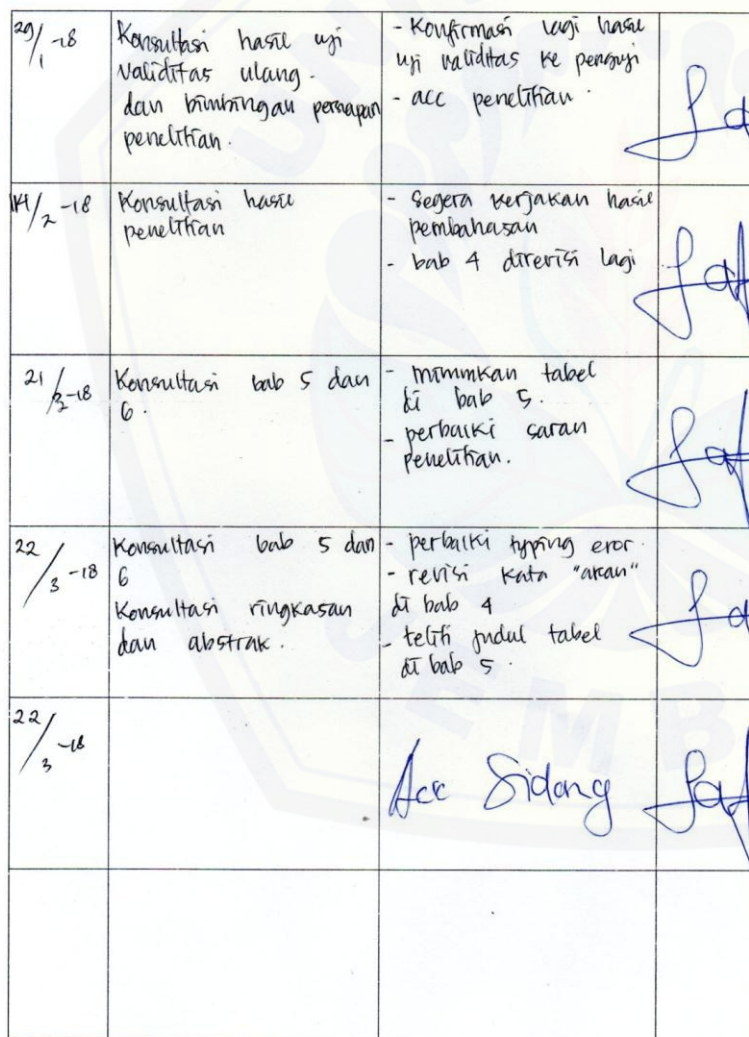 29/1 -18
Konsultasi hasil uji
validitas ulang.
dan bimbingan persiapan
penelitian.
- Konfirmasi lagi hasil
uji validitas ke penguji
- acc penelitian.
14/2 -18
Konsultasi hasil
penelitian
- Segera kerjakan hasil
pembahasan
- bab 4 direvisi lagi
21/3-18
Konsultasi bab 5 dan
6.
tabel
di bab 5.
- perbaiki saran
penelitian.
22/3 -18
Konsultasi bab 5 dan
6
Konsultasi ringkasan
dan abstrak.
- perbaiki typing eror.
- revisi kata "akan"
di bab 4
- teliti judul tabel
di bab 5.
22/3 -18
Acc Sidang